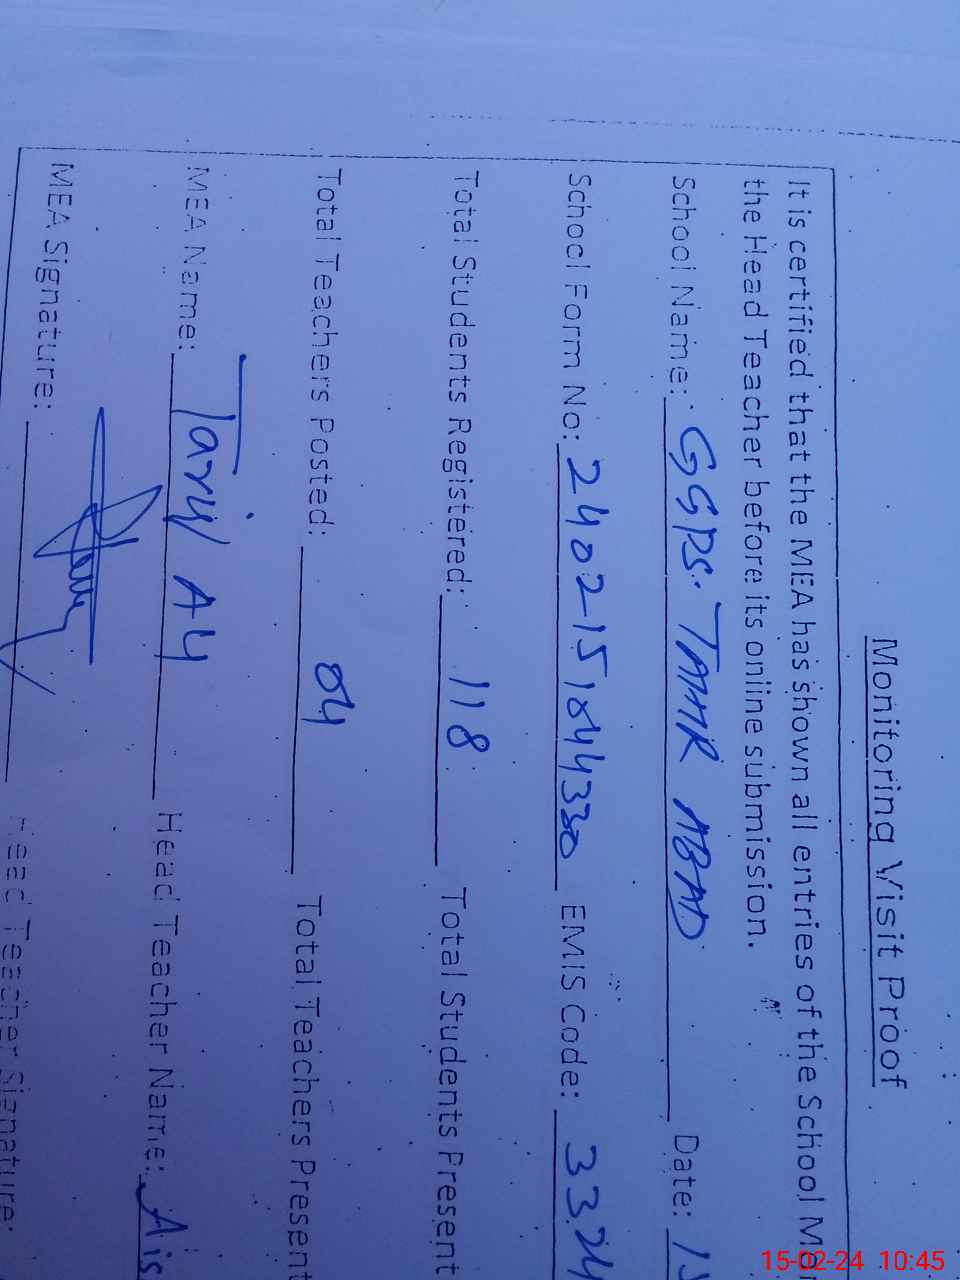 Monitoring Visit Proof
It is certified that the MEA has shown all entries of the School
the Head Teacher before its online submission.
School Name: GGPS. TAMIR ABAD Date: 1
School Form No: 2402151044330 EMIS Code: 3324
Total Students Registered: 118 Total Students Present
Total Teachers Posted: 04 Total Teachers Present
MEA Name: Tariq Ali Head Teacher Name: Ais
MEA Signature: Head Teacher Signature:
15-02-24 10:45